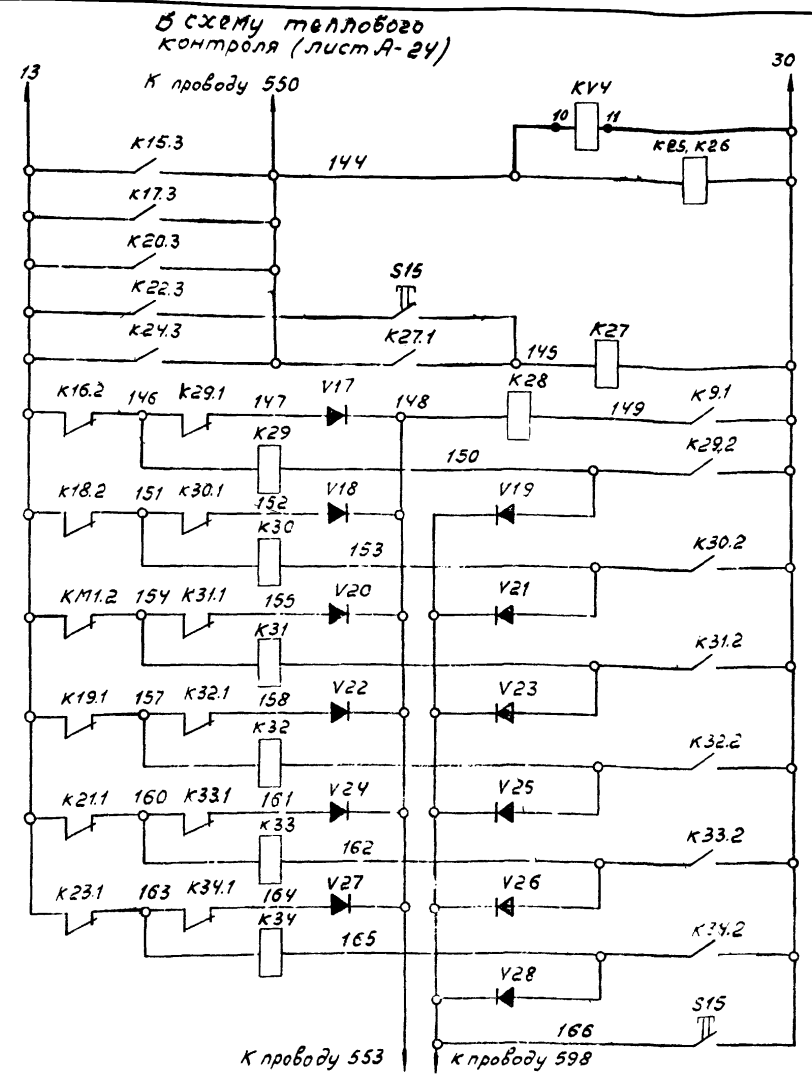 В схему теплового
контроля (лист А-24)
13
К проводу 550
30
KV4
10
11
К15.3
144
К25, К26
К17.3
К20.3
S15
К22.3
К24.3
К27.1
145
К27
К16.2
146
К29.1
147
V17
148
К28
149
К9.1
К29
150
К29.2
К18.2
151
К30.1
152
V18
V19
К30
153
К30.2
КМ1.2
154
К31.1
155
V20
V21
К31
К31.2
К19.1
157
К32.1
158
V22
V23
К32
К32.2
К21.1
160
К33.1
161
V24
V25
К33
162
К33.2
К23.1
163
К34.1
164
V27
V26
К34
165
К34.2
V28
S15
166
К проводу 553
К проводу 598